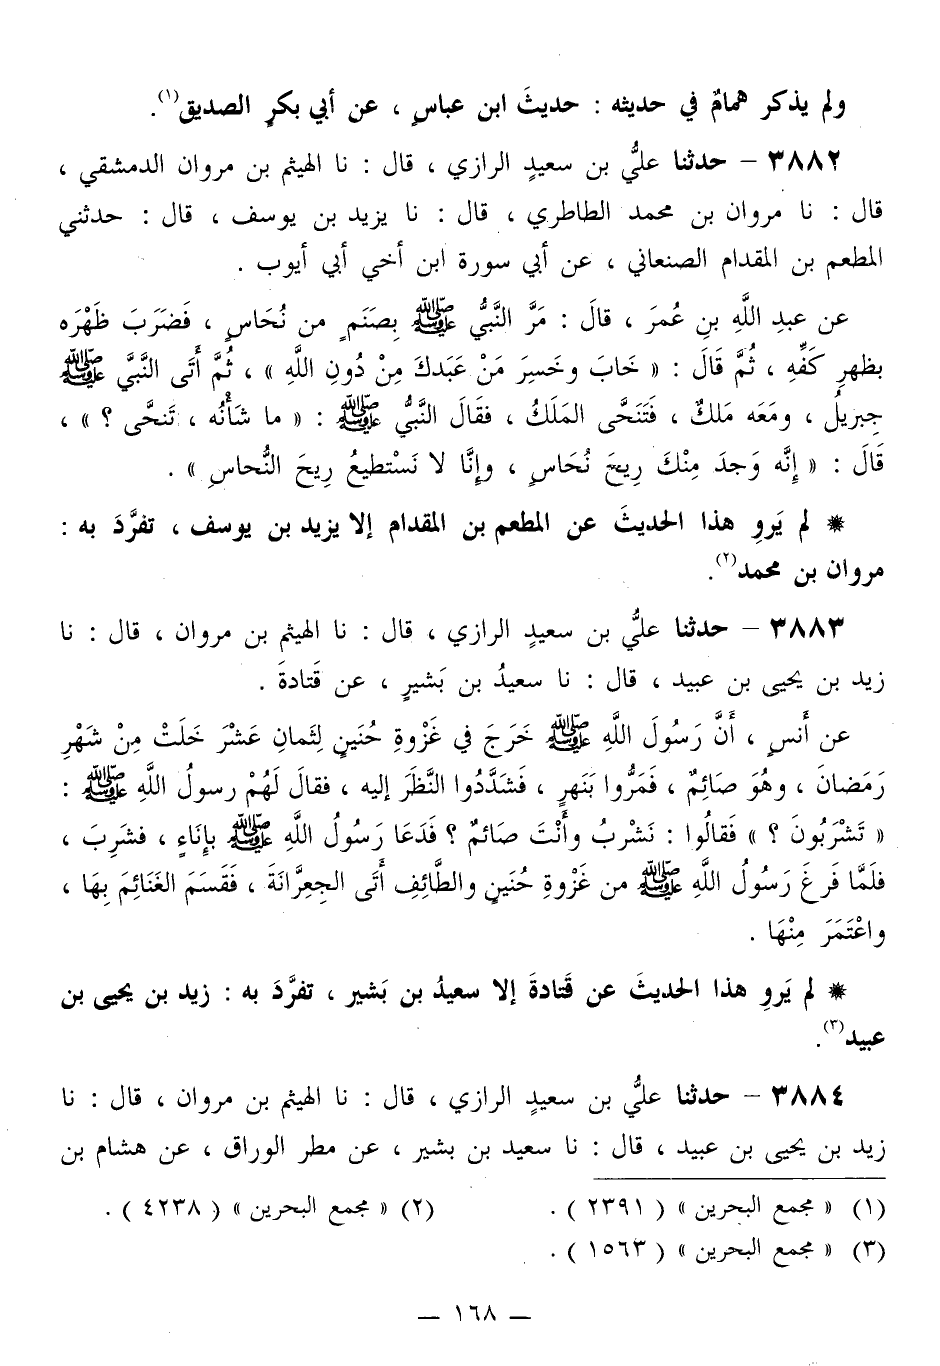 ولم يذكر همامٌ في حديثه : حديثَ ابن عباسٍ ، عن أبي بكرٍ الصديق(١).
٣٨٨٢ – حدثنا عليُّ بن سعيدٍ الرازي ، قال : نا الهيثم بن مروان الدمشقي ،
قال : نا مروان بن محمد الطاطري ، قال : نا يزيد بن يوسف ، قال : حدثني
المطعم بن المقدام الصنعاني ، عن أبي سورة ابن أخي أبي أيوب .
عن عبدِ اللَّهِ بنِ عُمرَ ، قالَ : مَرَّ النَّبيُّ ﷺ بِصَنَمٍ من نُحَاسٍ ، فَضَرَبَ ظَهْرَه
بظهرِ كَفِّهِ ، ثُمَّ قَالَ : « خَابَ وخَسِرَ مَنْ عَبَدكَ مِنْ دُونِ اللَّهِ » ، ثُمَّ أَتَى النَّبيَّ ﷺ
جِبرِيلُ ، ومَعَه مَلكٌ ، فَتَنَحَّى المَلَكُ ، فقَالَ النَّبيُّ ﷺ : « ما شَأْنُه ، تَنحَّى ؟ » ،
قَالَ : « إِنَّه وَجدَ مِنْكَ رِيحَ نُحَاسٍ ، وإِنَّا لا نَسْتطيعُ رِيحَ النُّحاسِ » .
* لم يَروِ هذا الحديثَ عن المطعم بن المقدام إلا يزيد بن يوسف ، تفرَّدَ به :
مروان بن محمد(٢).
٣٨٨٣ – حدثنا عليُّ بن سعيدٍ الرازي ، قال : نا الهيثم بن مروان ، قال : نا
زيد بن يحيى بن عبيد ، قال : نا سعيدُ بن بَشيرٍ ، عن قَتادةَ .
عن أنسٍ ، أنَّ رَسُولَ اللَّهِ ﷺ خَرَجَ في غَزْوةِ حُنَينٍ لِثَمانِ عَشْرَ خَلَتْ مِنْ شَهْرِ
رَمَضانَ ، وهُوَ صَائِمٌ ، فَمَرُّوا بَنَهرٍ ، فَشَدَّدُوا النَّظَرَ إليه ، فقالَ لَهُمْ رسولُ اللَّهِ ﷺ :
« تَشْرَبُونَ ؟ » فَقالُوا : نَشْربُ وأَنْتَ صَائمٌ ؟ فَدَعَا رَسُولُ اللَّهِ ﷺ بإِنَاءٍ ، فشَرِبَ ،
فلَمَّا فَرغَ رَسُولُ اللَّهِ ﷺ من غَزْوةِ حُنَينٍ والطَّائِفِ أَتَى الجِعِرَّانَةَ ، فَقَسَمَ الغَنَائِمَ بِهَا ،
واعْتَمَرَ مِنْهَا .
* لم يَروِ هذا الحديثَ عن قَتادةَ إلا سعيدُ بن بَشير ، تفرَّدَ به : زيد بن يحيى بن
عبيد(٣).
٣٨٨٤ – حدثنا عليُّ بن سعيدٍ الرازي ، قال : نا الهيثم بن مروان ، قال : نا
زيد بن يحيى بن عبيد ، قال : نا سعيد بن بشير ، عن مطر الوراق ، عن هشام بن
(١) « مجمع البحرين » ( ٢٣٩١ ) . (٢) « مجمع البحرين » ( ٤٢٣٨ ) .
(٣) « مجمع البحرين » ( ١٥٦٣ ) .
— ١٦٨ —